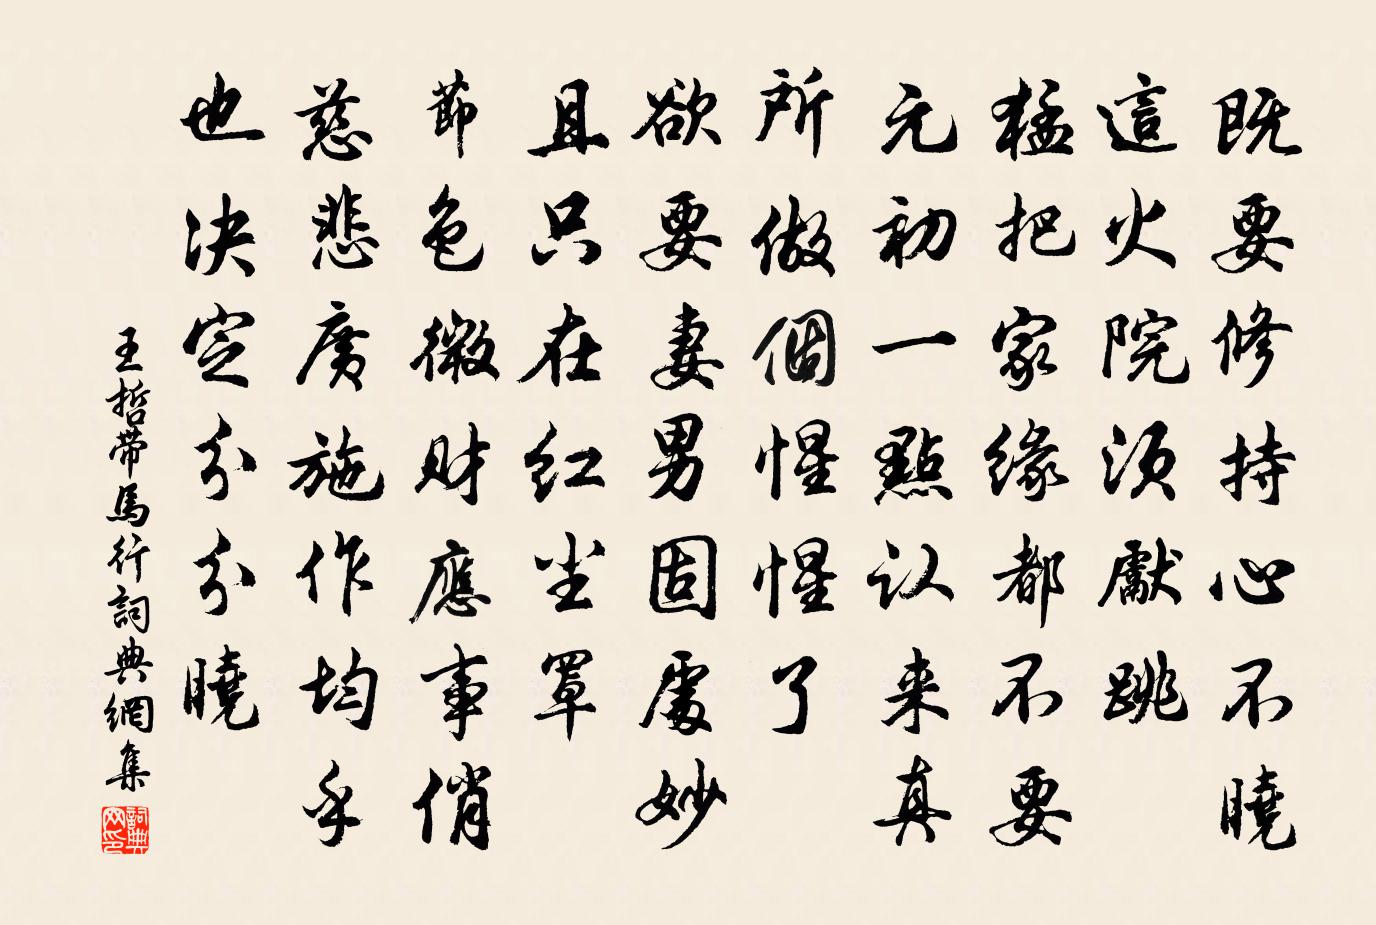 既要修持心不曉
這火院須獻跳
猛把家缘都不要
元初一點认来真
所做個惺惺了
欲要妻男固處妙
且只在红尘罩
節色微财應事俏
慈悲廣施作均平
也决定分分曉
王哲带馬行詞典網集
詞典网印